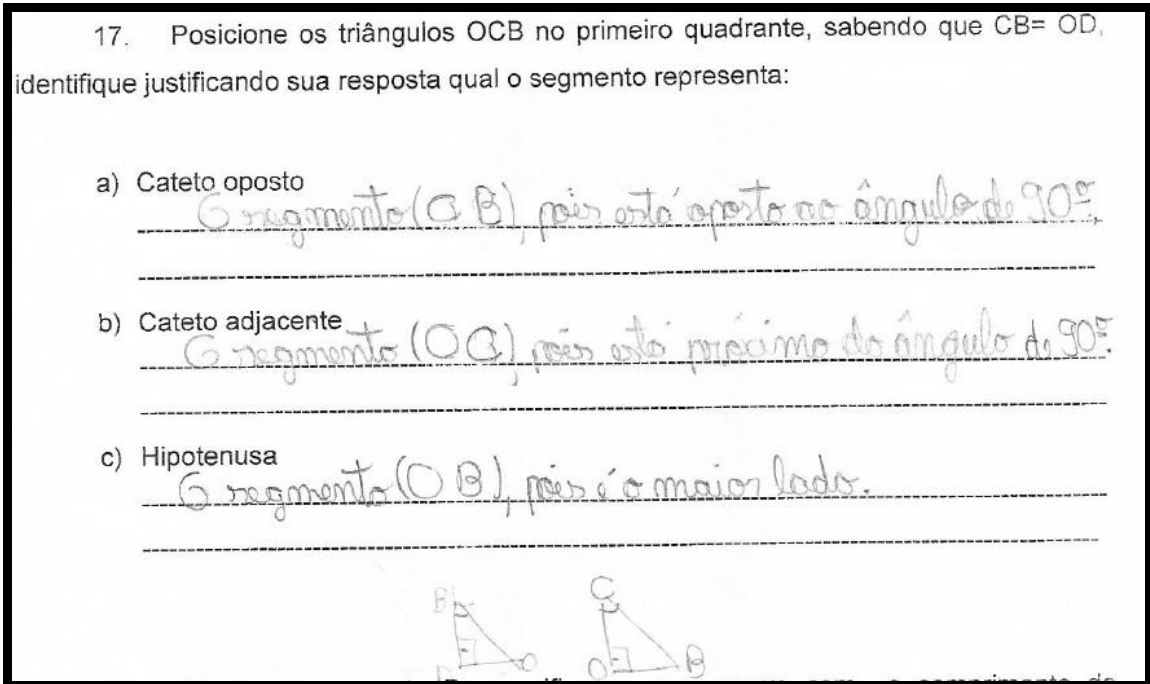 17. Posicione os triângulos OCB no primeiro quadrante, sabendo que CB= OD,
identifique justificando sua resposta qual o segmento representa:
a) Cateto oposto
O segmento (CB), pois está oposto ao ângulo de 90º.
b) Cateto adjacente
O segmento (OC), pois está próximo do ângulo de 90º.
c) Hipotenusa
O segmento (OB), pois é o maior lado.
B C
O O B